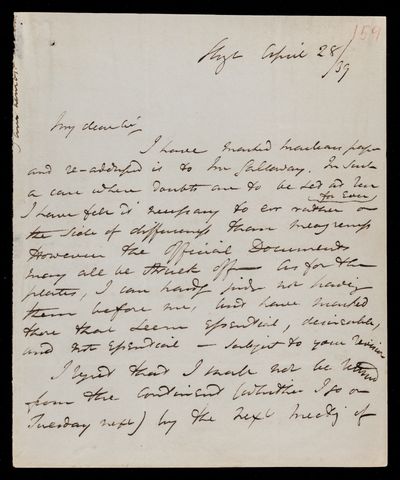 154
April 28/39
My dear Sir,
I have marked Maclears pap-
and re-addressed it to Mr Galloway. In such
a case where doubts are to be set at rest
for Ever,
I have felt it necessary to err rather on
the side of diffuseness than meagreness
However the Official Documents
may all be struck off — As for the
plates, I can hardly judge not having
them before me, but have marked
those that seem Essential, desireable,
and not Essential — subject to your revision
I regret that I shall not be returned
from the Continent (whither I go on
Tuesday next) by the next meeting of